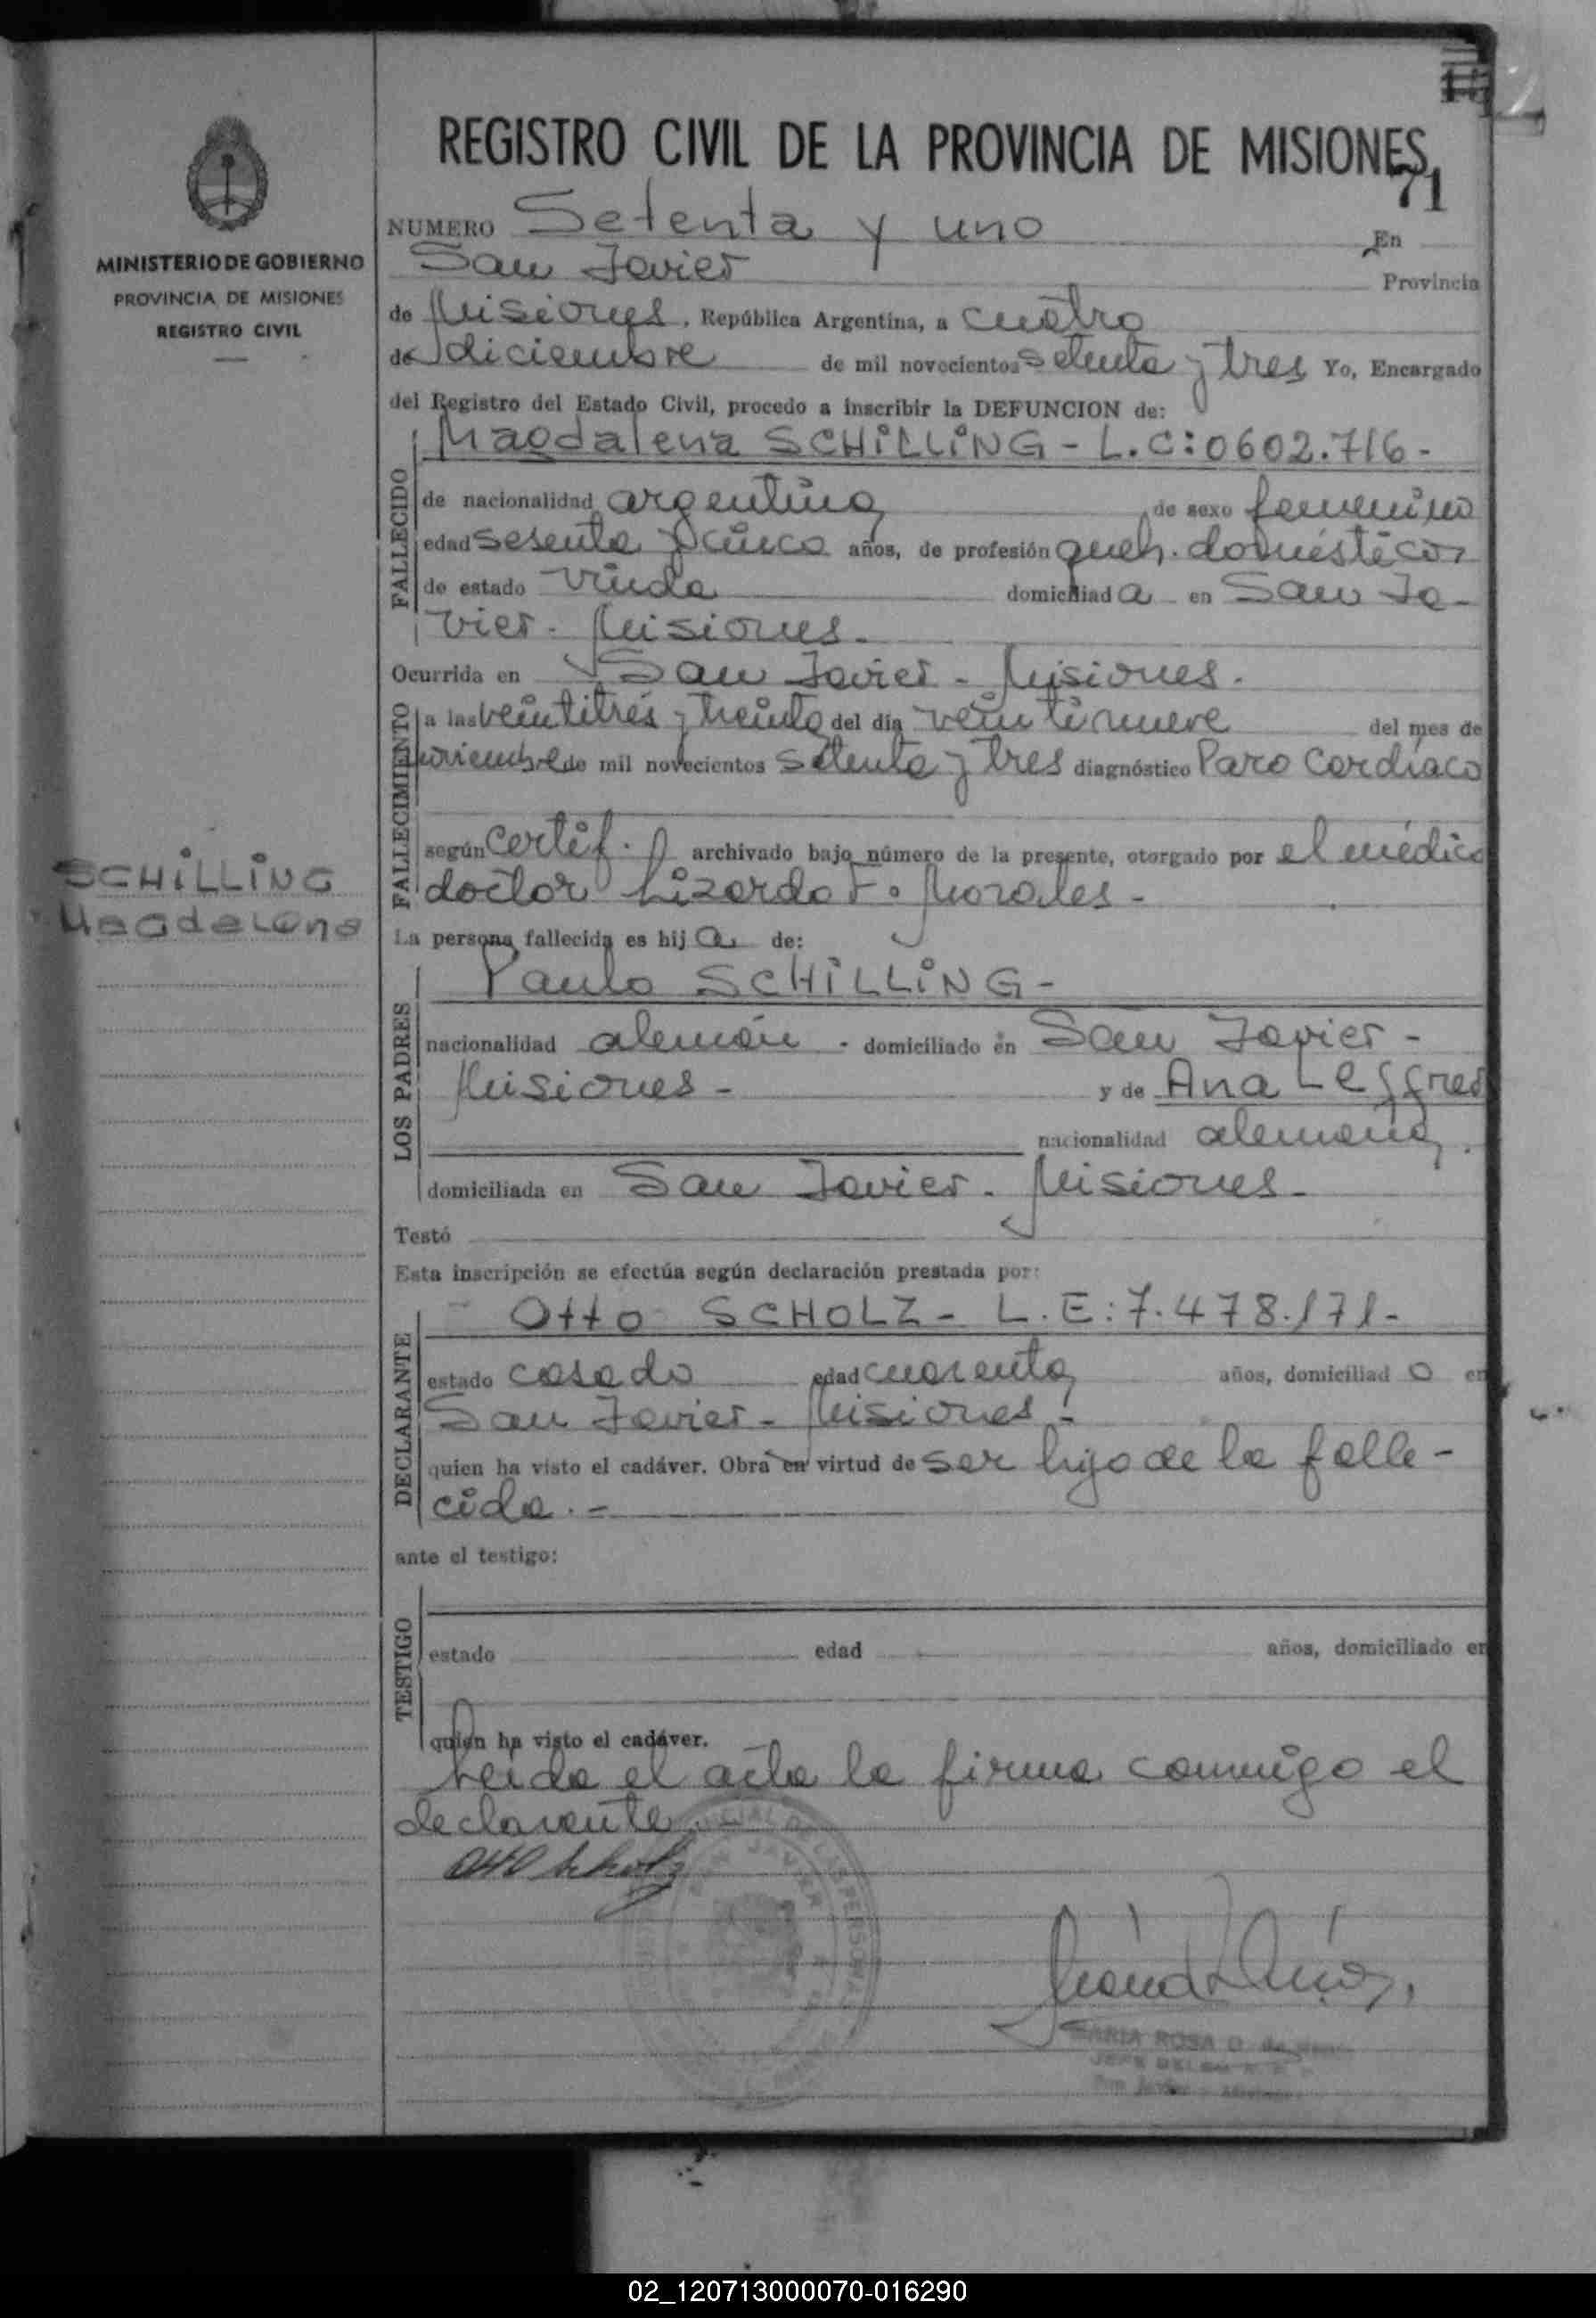 REGISTRO CIVIL DE LA PROVINCIA DE MISIONES
71
MINISTERIO DE GOBIERNO
PROVINCIA DE MISIONES
REGISTRO CIVIL
NUMERO Setenta y uno En
San Javier Provincia
de Misiones, República Argentina, a cuatro
de diciembre de mil novecientos setenta y tres Yo, Encargado
del Registro del Estado Civil, procedo a inscribir la DEFUNCION de:
Magdalena SCHiLLiNG - L.C:0602.716-
FALLECIDO
de nacionalidad argentina de sexo femenino
edad sesenta y cinco años, de profesión queh. domésticos
de estado viuda domiciliad a en San Ja-
vier - Misiones.
Ocurrida en San Javier - Misiones.
FALLECIMIENTO
a las veintitrés y treinta del día veintinueve del mes de
noviembre de mil novecientos setenta y tres diagnóstico Paro Cardíaco
según certif. archivado bajo número de la presente, otorgado por el médico
doctor Lizardo F. Morales -
SCHiLLiNG
Magdalena
La persona fallecida es hij a de:
LOS PADRES
Paulo SCHiLLiNG -
nacionalidad alemán - domiciliado en San Javier -
Misiones - y de Ana
nacionalidad alemana.
domiciliada en San Javier - Misiones -
Testó
Esta inscripción se efectúa según declaración prestada por:
DECLARANTE
Otto SCHOLZ - L.E:7.478.171-
estado casado edad cuarenta años, domiciliad o en
San Javier - Misiones -
quien ha visto el cadáver. Obra en virtud de ser hijo de la falle-
cida. -
ante el testigo:
TESTIGO
estado edad años, domiciliado en
quien ha visto el cadáver.
Leída el acta la firma conmigo el
declarante.
Otto Scholz
MARIA ROSA D. de
JEFE
San Javier - Misiones
02_120713000070-016290